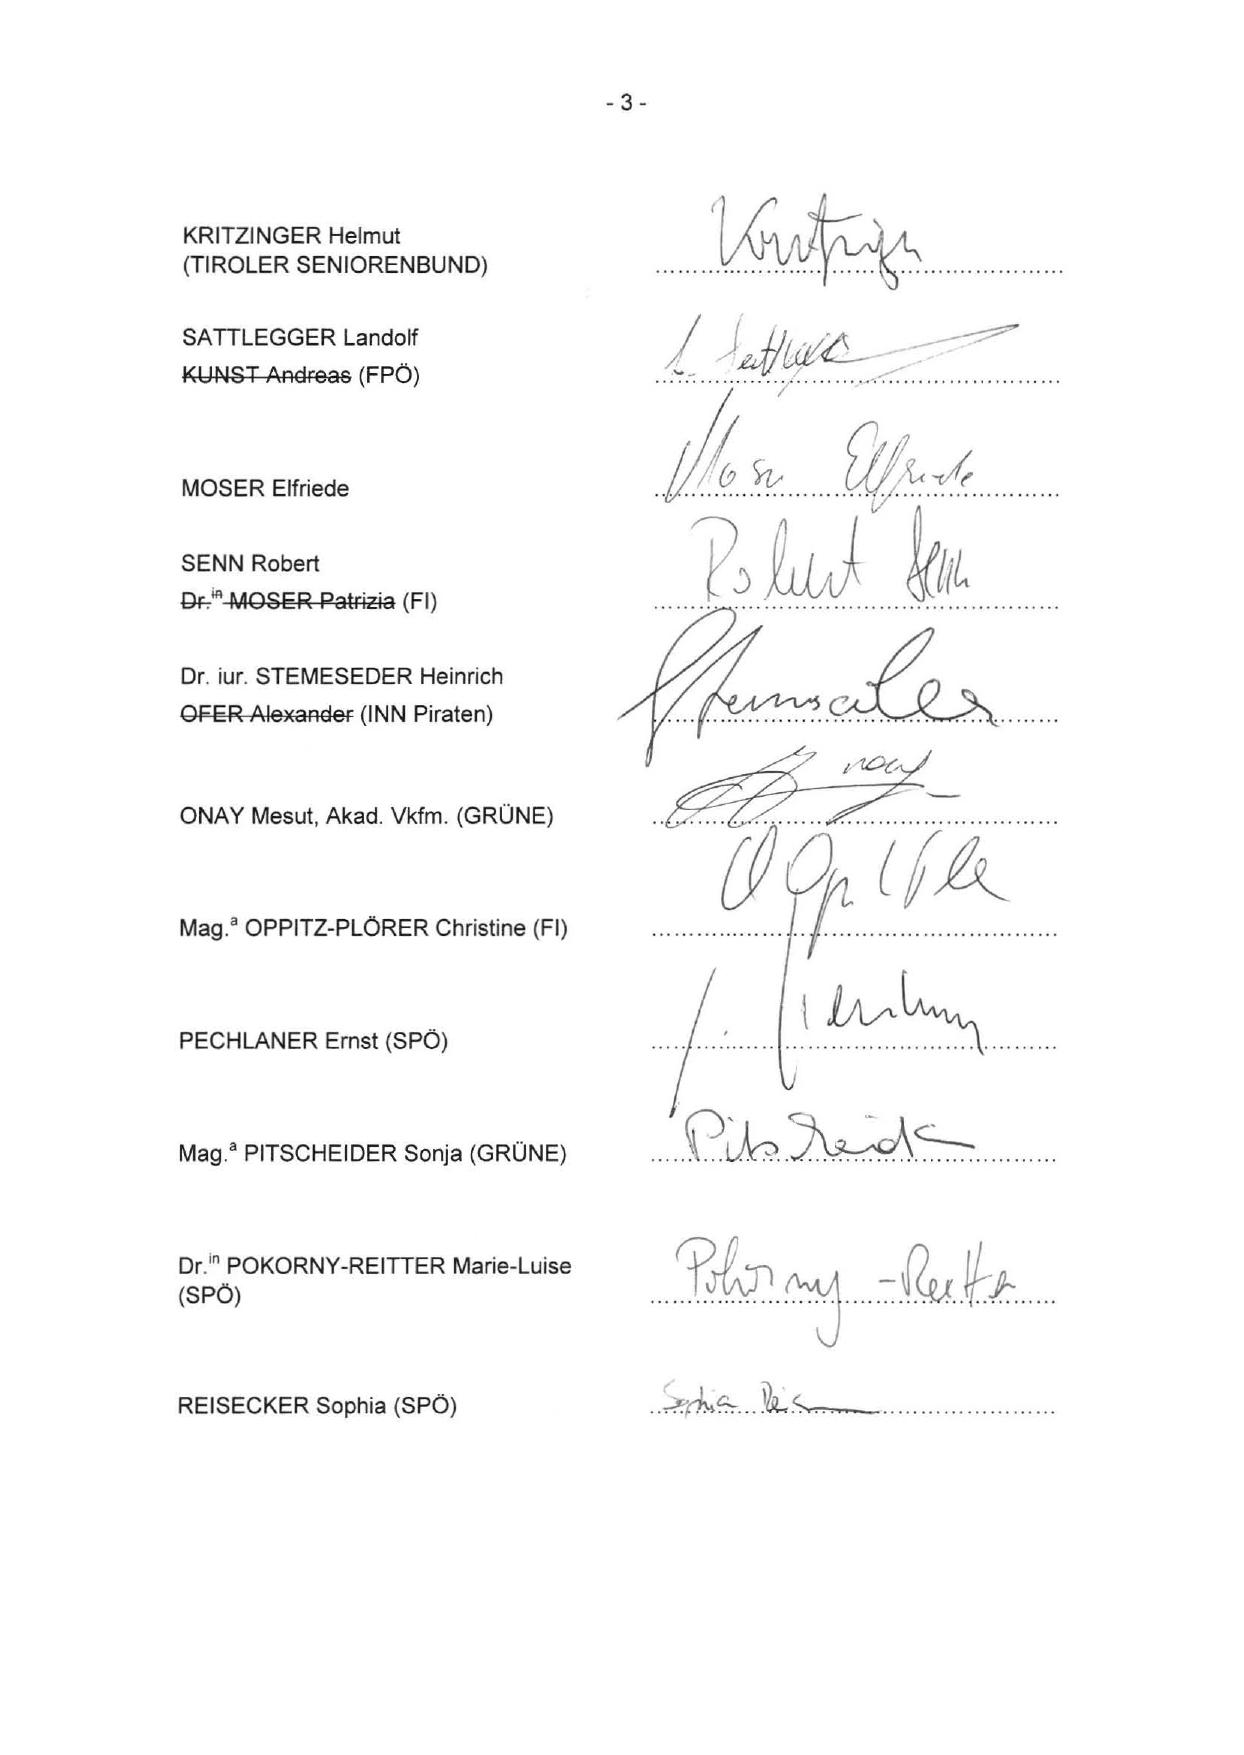 - 3 -
KRITZINGER Helmut
(TIROLER SENIORENBUND)
SATTLEGGER Landolf
KUNST Andreas (FPÖ)
MOSER Elfriede
Moser Elfriede
SENN Robert
Robert Senn
Dr.in MOSER Patrizia (FI)
Dr. iur. STEMESEDER Heinrich
OFER Alexander (INN Piraten)
ONAY Mesut, Akad. Vkfm. (GRÜNE)
Mag.a OPPITZ-PLÖRER Christine (FI)
PECHLANER Ernst (SPÖ)
Mag.a PITSCHEIDER Sonja (GRÜNE)
Dr.in POKORNY-REITTER Marie-Luise
Pokorny-Reitter
(SPÖ)
REISECKER Sophia (SPÖ) Sophia